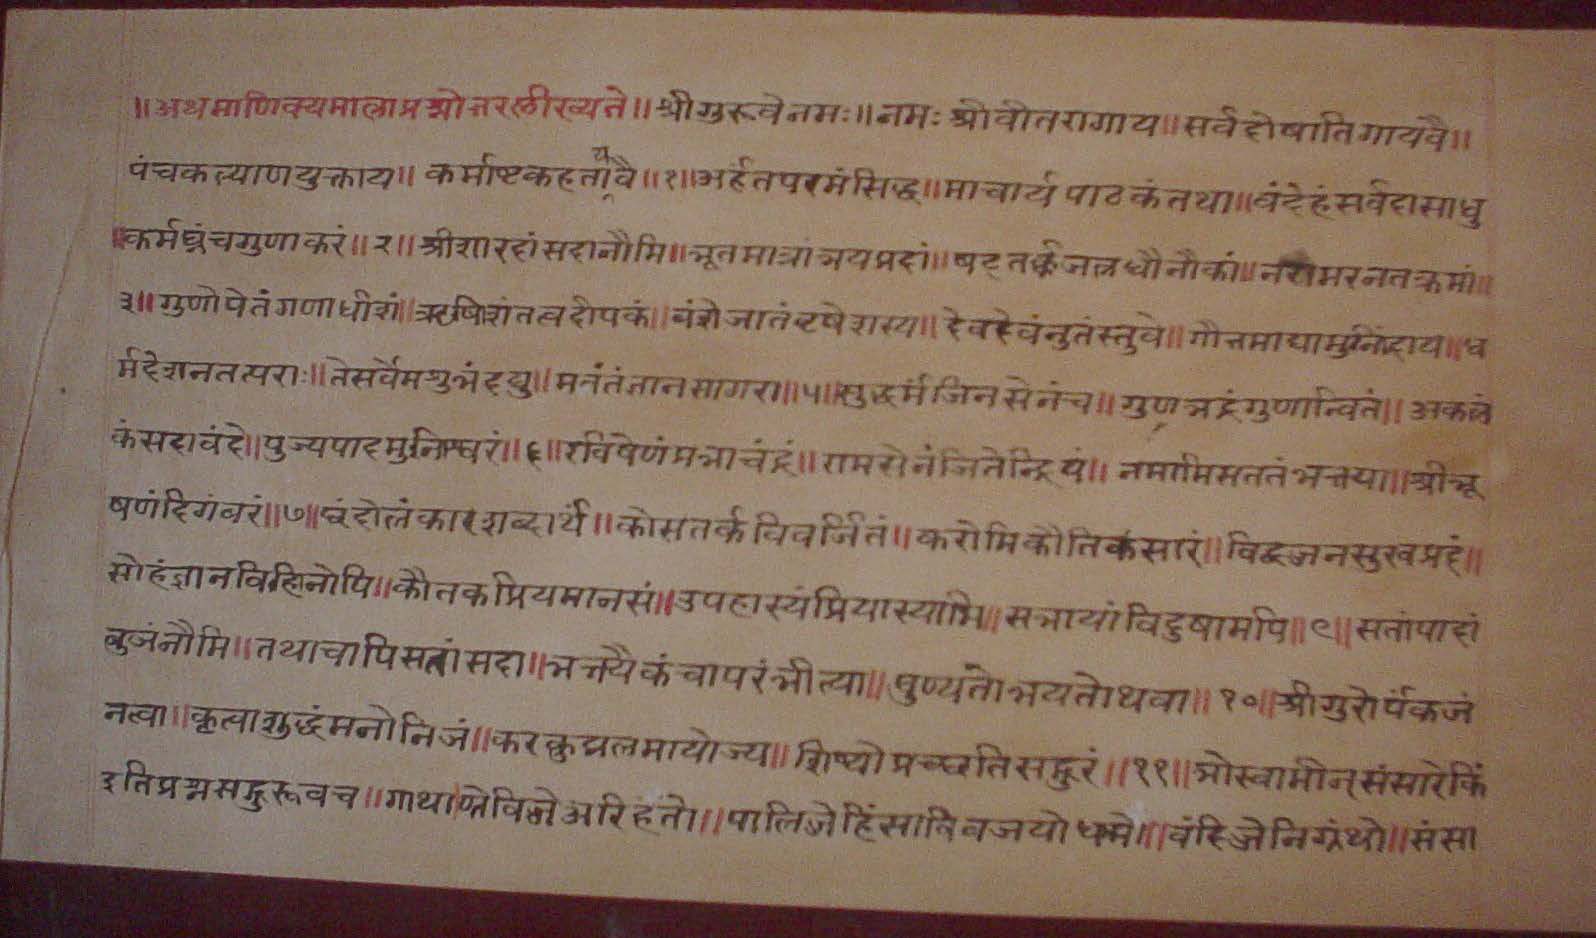 ॥अथमाणिक्यमालाप्रश्नोत्तरलीख्यते॥ श्रीगुरूवेनमः॥नमः श्रीवीतरागाय॥सर्वदोषातिगायवै॥
पंचकल्याणयुक्ताय॥ कर्माष्टकहतायवै॥१॥अर्हंतपरमंसिद्ध॥माचार्यपाठकंतथा॥वंदेहंसर्वदासाधु
॥कर्मघ्नंचगुणाकरं॥२॥श्रीशारदांसदानौमि॥भूतमात्राभयप्रदां॥षट्तर्कजलधौनौकां॥नरामरनतक्रमां॥
३॥गुणोपेतंगणाधीशं॥ऋषिशंतत्वदीपकं॥वंशेजातंवृषेशस्य॥देवदेवंनुतंस्तुवे॥गौत्तमाद्यामुनिंद्राय॥ध
र्मदेशनतत्पराः॥तेसर्वेमशुभंदद्यु॥मतंतंज्ञानसागरा॥५॥सुद्धर्मंजिनसेनंच॥गुणभद्रंगुणान्वितं॥अकलं
कंसदावंदे॥पुज्यपादमुनिश्वरं॥६॥रविषेणंप्रभाचंद्रं॥रामसेनंजितेन्द्रियं॥नमामिसततंभक्तया॥श्रीभू
षणंदिगंबरं॥७॥छंदोलंकारशब्दार्थै॥कोसतर्कविवर्जितं॥करोमिकौतिकंसारं॥विद्वज्जनसुखप्रदं॥
सोहंज्ञानविहिनोपि॥कौतकप्रियमानसं॥उपहास्यंप्रियास्यामि॥सभायांविदुषामपि॥९॥सतांपादां
बुजंनौमि॥तथाचापिसतांसदा॥भक्तयैकंचापरंभीत्या॥पुण्यतोभयतोथवा॥१०॥श्रीगुरोर्पंकजं
नत्वा॥कृत्वाशुद्धंमनोनिजं॥करकुड्मलमायोज्य॥शिष्योप्रच्छतिसद्गुरं॥११॥भोस्वामीन्संसारेकिं
इतिप्रश्नसद्गुरूवच॥गाथा॥णेविज्जेअरिहंतो॥पालिजेहिंसाविवजयोधम्मे॥वंदिज्जेनिग्रंथो॥संसा